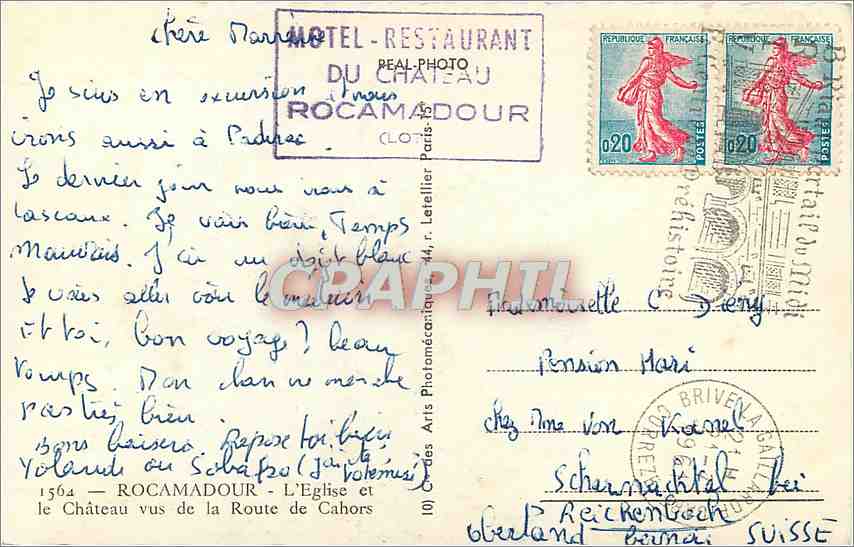 chère Marraine
Je suis en excursion et nous
irons aussi à Padirac.
Le dernier jour nous irons à
Lascaux. Je vais bien, Temps
mauvais. J'ai un doigt blanc
Je vais aller voir le médecin
Et toi, bon voyage? beau
temps. Mon chan ne marche
pas très bien
Bons baisers Repose toi bien
Yolande ou
MOTEL - RESTAURANT
REAL-PHOTO
DU CHATEAU
ROCAMADOUR
(LOT)
1564 — ROCAMADOUR - L'Eglise et
le Château vus de la Route de Cahors
10) Cie des Arts Photomécaniques, 44, r. Letellier Paris-15e
CPAPHIL
REPUBLIQUE FRANÇAISE
0,20
POSTES
REPUBLIQUE FRANÇAISE
0,20
POSTES
du Midi
Préhistoire
BRIVE-LA-GAILLARDE
CORREZE
Mademoiselle C Dieny
Pension Mari
chez Mme von Kanel
Scharnachtal bei
Reichenbach
Oberland bernois SUISSE